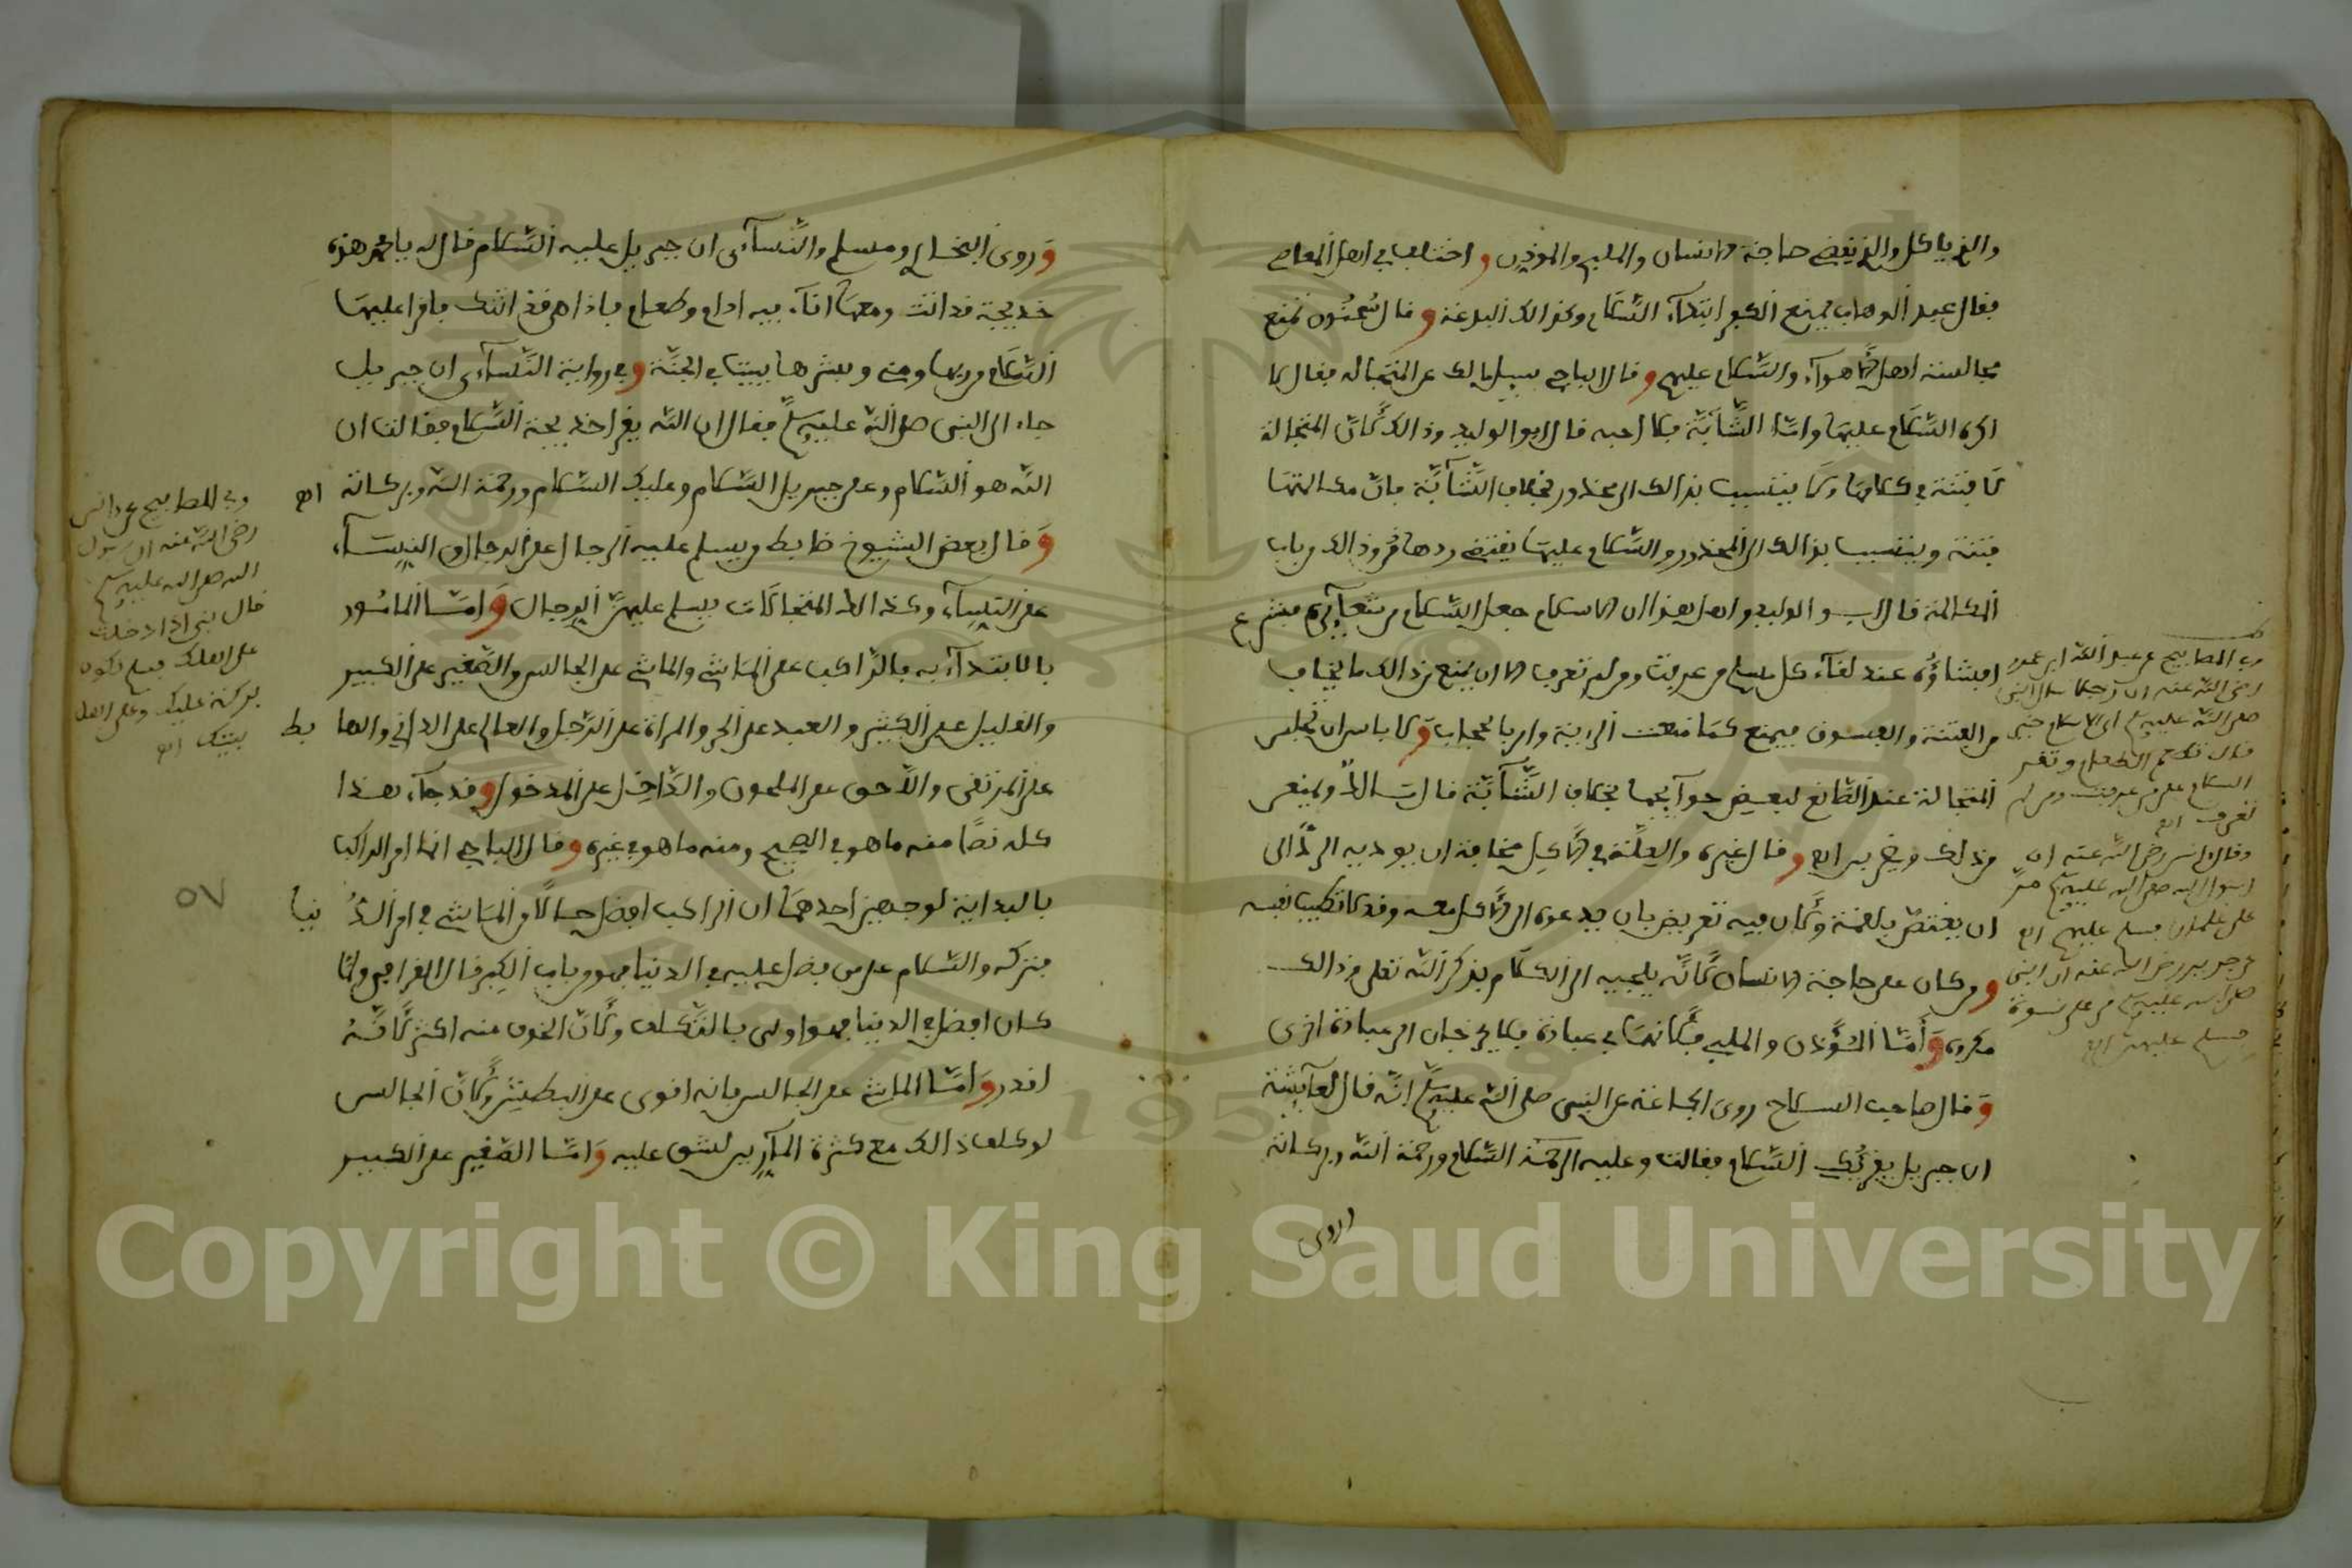 والذي ياكل والذي يقضي حاجة الانسان والملبي والموذن واختلف في اهل المعاصي
فقال عبد الوهاب يمنع الكبر ابتداء السّلام وكذالك البدعة وقال سحنون تمنع
مجالسة اهل الاهواء والسّلام عليهم وقال الباجي سيل مالك عن المتجالة فقال لا
اكره السّلام عليها وامّا الشّآبّة فلا احبه قال ابو الوليد وذالك لأنّ المتجالة
لا فتنة في كلامها ولا يتسبب بذالك الى محذور بخلاف الشّآبّة فانّ مكالمتها
فتنة ويتسبب بذالك الى المحذور والسّلام عليها يقتضي ردها فهو ذالك من باب
المكالمة قال ابو الوليد واصل هذا ان الاسلام جعل السّلام من شعآئره فشرع
افشاؤه عند لقآء كل مسلم من عرفت ومن لم تعرف الا ان يمنع من ذالك ما يخاف
من الفتنة والفسوق فيمنع كما منعت الزينة وامر بالحجاب ولا باس ان تجلس
المتجالة عند الصّانع لبعض حوآيجها بخلاف الشّآبّة قال مالك ويمنعن
من ذلك ويضربن اهـ وقال غيره والعلّة في الاكل مخافة ان يوديه الردّ الى
ان يغتصّ بلقمة ولأن فيه تعريض بان يدعوه الى الاكل معه وقد لا تطيب نفسه
ومن كان على حاجة الانسان لأنّه يلجيه الى الكلام بذكر الله تعلى وذالك
مكروه وأمّا المؤذن والملبي فلأنهما في عبادة فلا يخرجان الى عبادة اخرى
وقال صاحب السلاح روى الجماعة عن النبي صلى الله عليه وسلم انّه قال لعآيشة
ان جبريل يقرئك السّلام فقالت وعليه السّلام ورحمة الله وبركاته
وروى
وفي المصابيح عن عبد الله ابن عمرو
رضي الله عنه ان رجلا سال النبي
صلى الله عليه وسلم اي الاسلام خير
قال تطعم الطعام وتقر
السلام على من عرفت ومن لم
تعرف اهـ
وقال انس رضي الله عنه ان
رسول الله صلى الله عليه وسلم مرّ
على غلمان فسلم عليهم اهـ
عن جرير رضي الله عنه ان النبي
صلى الله عليه وسلم مر على نسوة
فسلم عليهنّ اهـ
وروى البخاري ومسلم والنّسآءى ان جبريل عليه السّلام قال له يا محمد هذه
خديجة قد اتت ومعها انآء فيه ادام وطعام فاذا هي قد اتتك فاقرا عليها
السّلام من ربها ومني وبشرها ببيت في الجنّة وفي رواية النّسآءى ان جبريل
جاء الى النبي صلى الله عليه وسلم فقال ان الله يقرا خديجة السّلام فقالت ان
الله هو السّلام وعلى جبريل السّلام وعليك السّلام ورحمة الله وبركاته اهـ
وقال بعض الشيوخ ضابطه ويسلم عليه الرجال على الرجال او النسآء
على النسآء وكذالك المتجالات يسلم عليهنّ الرجال وامّا المامور
بالابتدآء به فالرّاكب على الماشي والماشي على الجالس والصّغير على الكبير
والقليل على الكثير والعبد على الحر والمراة على الرّجل والعالي على الداني والهابط
على المرتقى واللّاحق على الملحوق والدّاخل على المدخول وقد جآء هذا
كله نصًا منه ما هو في الصحيح ومنه ما هو في غيره وقال الباجي انما امر الراكب
بالبداية لوجهين احدهما ان الراكب افضل حالًا من الماشي في امر الدّنيا
بتركه والسّلام على من فضل عليه في الدنيا فهو من باب الكبر قال القرافي وانما
كان افضل في الدنيا فهو اولى بالتّكلف ولأنّ الخوف منه اكثر لأنّه
اقدر وامّا الماشي على الجالس فانه اقوى على البطش ولأنّ الجالس
لو كلف ذالك مع كثرة المآرين لشق عليه وامّا الصّغير على الكبير
وفي المصابيح عن انس
رضي الله عنه ان رسول
الله صلى الله عليه وسلم
قال يبني اذا دخلت
على اهلك فسلم تكون
بركة عليك وعلى اهل
بيتك اهـ
٥٧
Copyright © King Saud University
1957